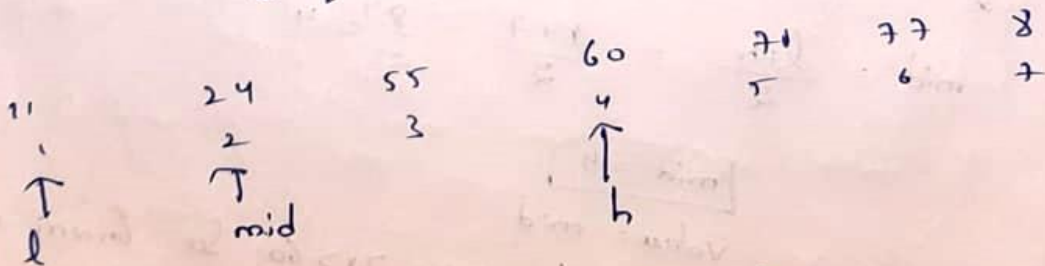 11 24 55 60 71 77 8
1 2 3 4 5 6 7
l mid h